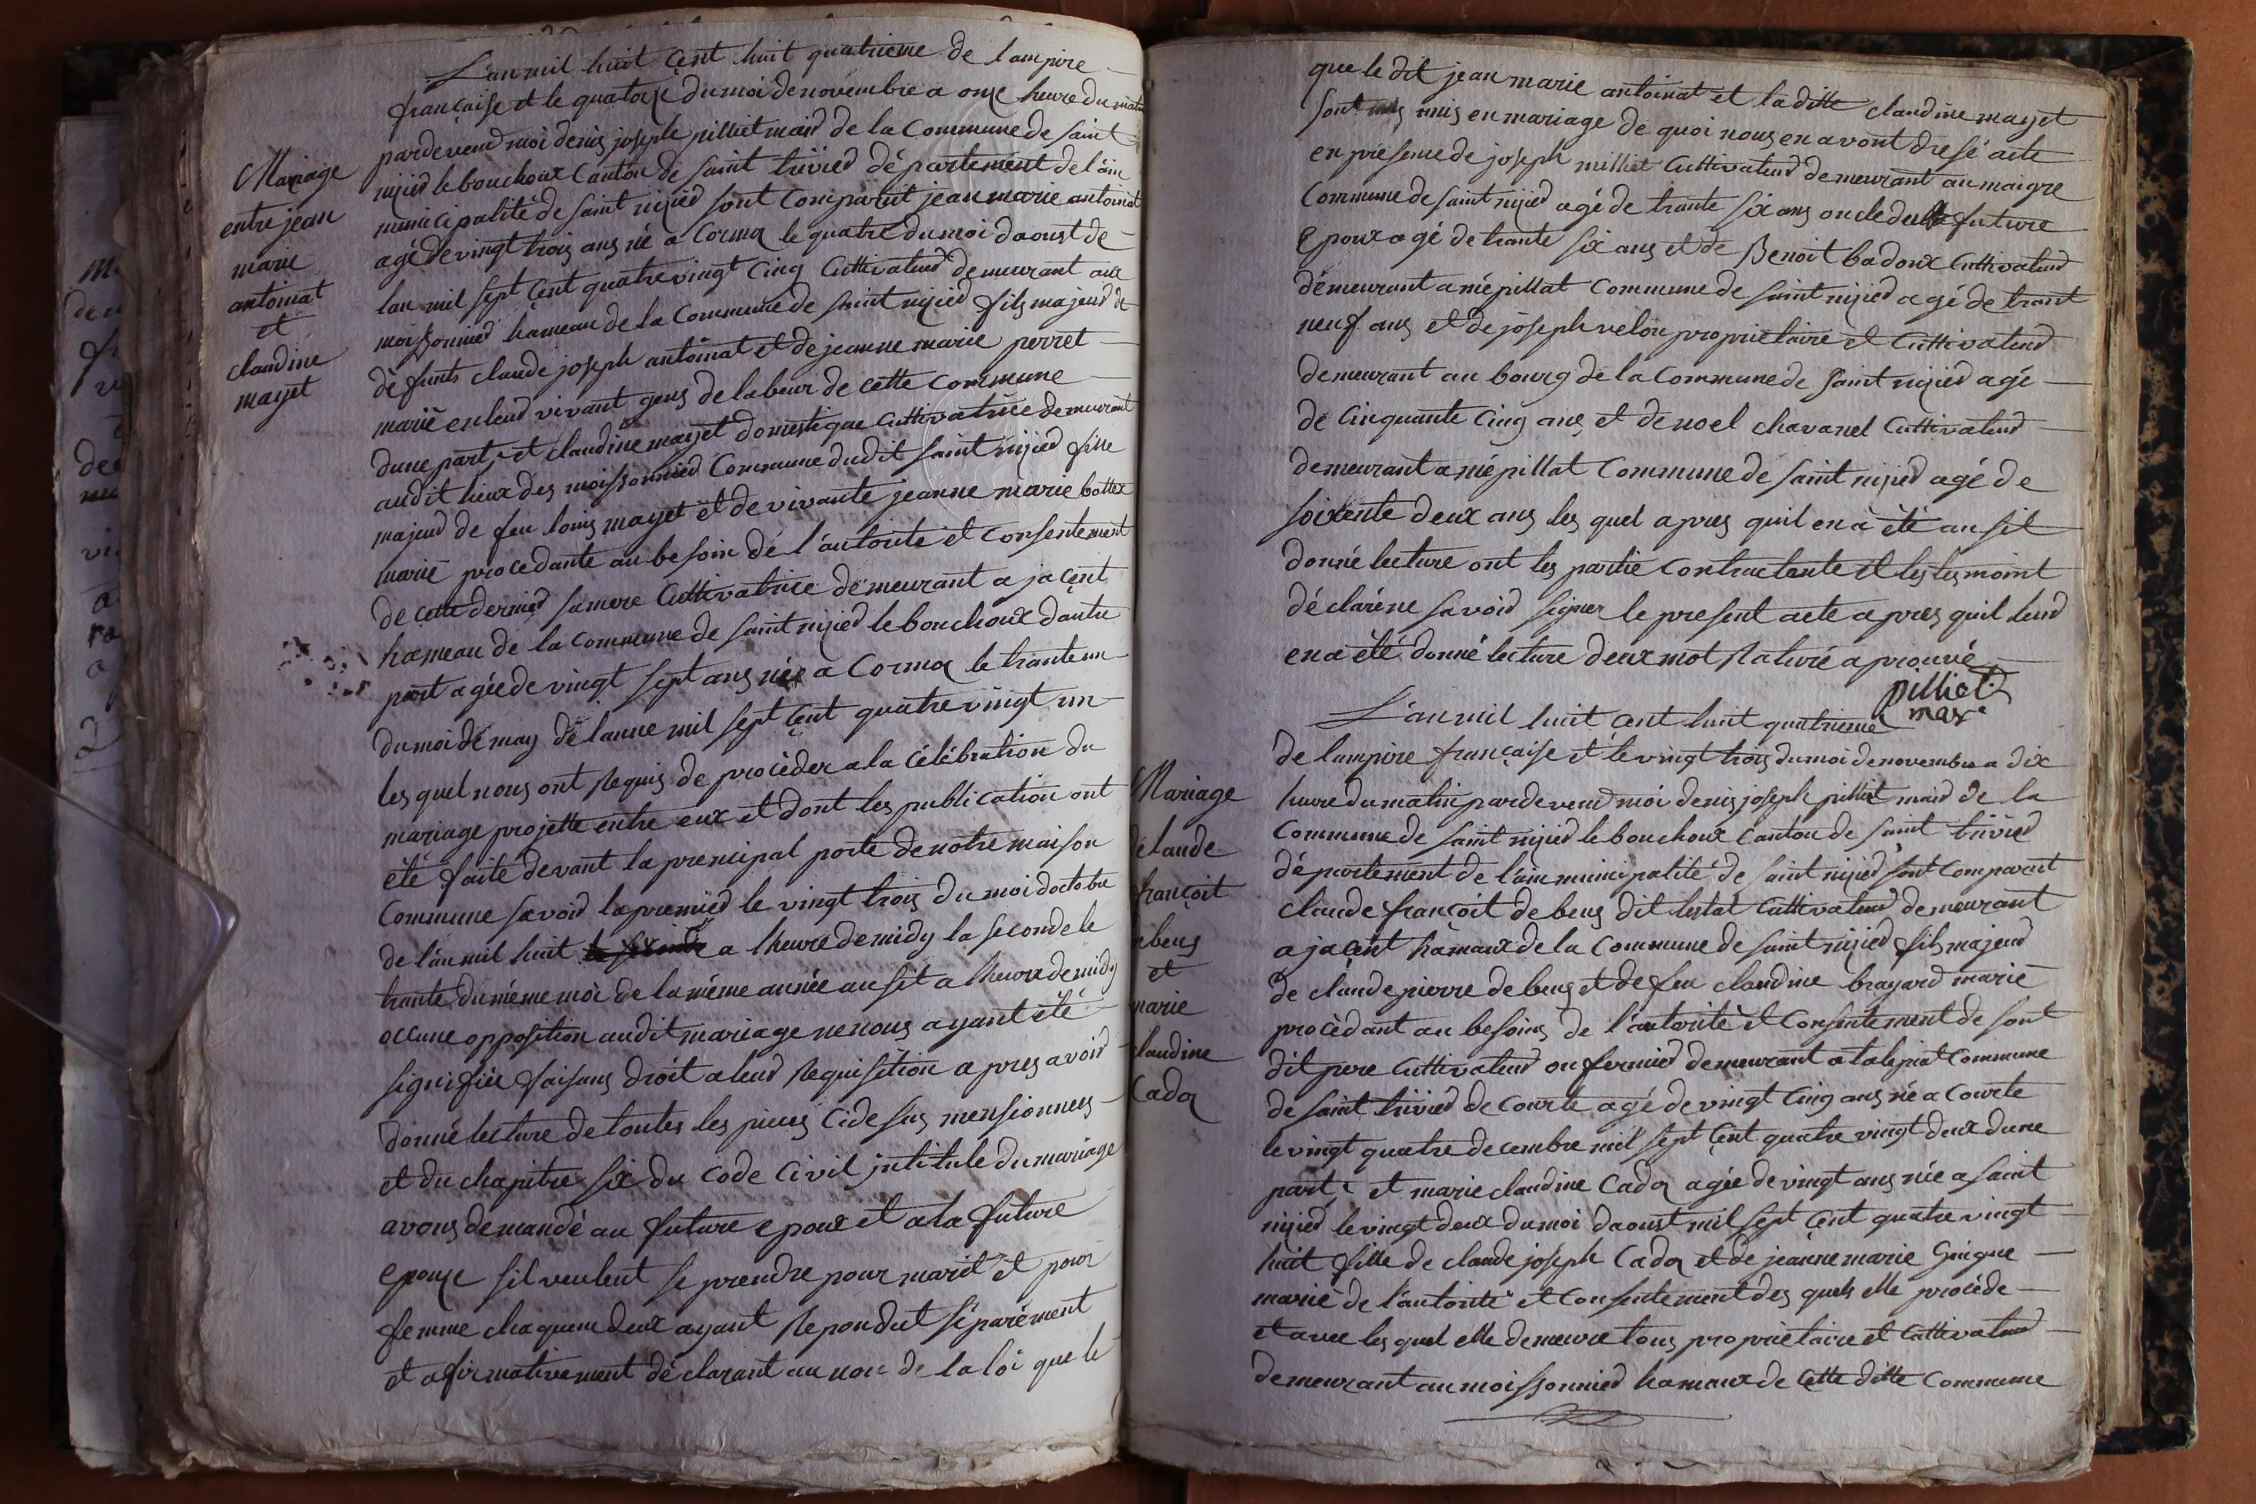 Mariage
entre jean
marie
antoinat
et
claudine
mayet
L'an mil huit cent huit quatrieme de l ampire
française et le quatorze du moi de novembre a onze heure du matin
pardevend moi denis joseph pilliet maid de la Commune de saint
nizied le bouchoux Canton de saint trivied département de l'ain
municipalité de saint nizied sont Comparut jean marie antoinat
agé de vingt trois ans né a Cormoz le quatre du moi daoust de
lan mil sept cent quatre vingt cinq Cultivateud demeurant aux
moissonnied hameau de la Commune de saint nizied fils majeud de
défunts claude joseph antoinat et de jeanne marie perret
marié en leud vivant gens de labeur de cette Commune
dune part, et claudine mayet domestique Cultivatrice demeurant
audit lieux des moissonnied Commune dudit saint nizied fille
majeud de feu louis mayet et de vivante jeanne marie bottex
marié procédante au besoin de l'autorité et Consentement
de cette dernied sa mere Cultivatrice demeurant a jacent
hameau de la Commune de saint nizied le bouchoux dautre
part agée de vingt sept ans née a Cormoz le trante un
du moi de may de lanne mil sept cent quatre vingt un
les quel nous ont Requis de procéder a la célébration du
mariage projetté entre eux et dont les publication ont
été faite devant la principal porte de notre maison
Commune savoid la premied le vingt trois du moi doctobre
de l'an mil huit a lheure de midy la seconde le
trante du méme moi de la méme année ausit a lheure de midy
occune opposition audit mariage ne nous ayant été
signifiée faisans droit a leud Requisition apres avoid
donné lecture de toutes les pieces cidesus mensionnees
et du chapitre six du code Civil intitule du mariage
avons demandé au future epoux et a la future
epouze sil veulent se prendre pour marit et pour
femme chaquun deux ayant Repondut séparément
et afirmativement déclarant au non de la loi que le
que le dit jean marie antoinat et la ditte claudine mayet
sont unis en mariage de quoi nous en avont dresé acte
en présense de joseph milliet Cultivateud demeurant au maigre
Commune de saint nizied agé de trante six ans oncle du future
Epoux agé de trante six ans et de Benoit badoux Cultivateud
démeurant a mépillat Commune de saint nizied agé de trant
neuf ans et de joseph velon propriétaire et Cultivateud
demeurant au bourg de la Commune de saint nizied agé
de cinquante cinq ans et de noel chavanel Cultivateud
demeurant a mépillat Commune de saint nizied agé de
soixente deux ans les quel apres quil en a été ausit
donné lecture ont les partie Contractante et les tesmoint
déclaréne savoid signer le present acte apres quil leud
en a été donné lecture deux mot Raturé aprouvé
pilliet
mare
Mariage
claude
françoit
debeus
et
marie
claudine
Cadoz
L'an mil huit cent huit quatrieme
de lampire française et le vingt trois du moi de novembre a dix
heure du matin pardevend moi denis joseph pilliet maid de la
Commune de saint nizied le bouchoux Canton de saint trivied
département de l'ain municipalité de saint nizied sont Comparut
claude françoit de beus dit lestat Cultivateud demeurant
a jacent hamaux de la Commune de saint nizied fils majeud
de claude pierre de beus et de feu claudine brayard marié
procèdant au besoins de l'autorité et Consentement de sont
dit pere Cultivateud ou fermied demeurant a Commune
de saint trivied de Courte agé de vingt cinq ans né a Courte
le vingt quatre decembre mil sept cent quatre vingt deux dune
part, et marie claudine Cadoz agée de vingt ans née a saint
nizied le vingt deux du moi daoust mil sept cent quatre vingt
huit fille de claude joseph Cadoz et de jeanne marie Guigue
marié de l'autorité et Consentement des quels elle procéde
et avec les quel elle demeure tous proprietaire et Cultivateud
demeurant au moissonnied hamaux de cette ditte Commune